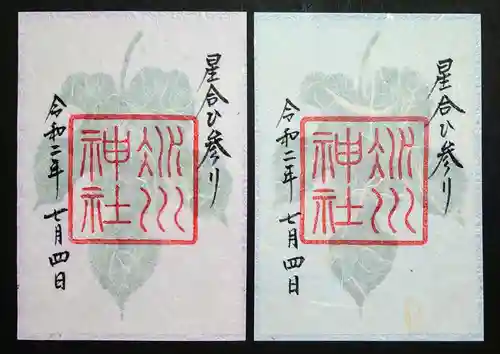 星合ひ参り
氷川
神社
令和二年 七月四日
星合ひ参り
氷川
神社
令和二年 七月四日